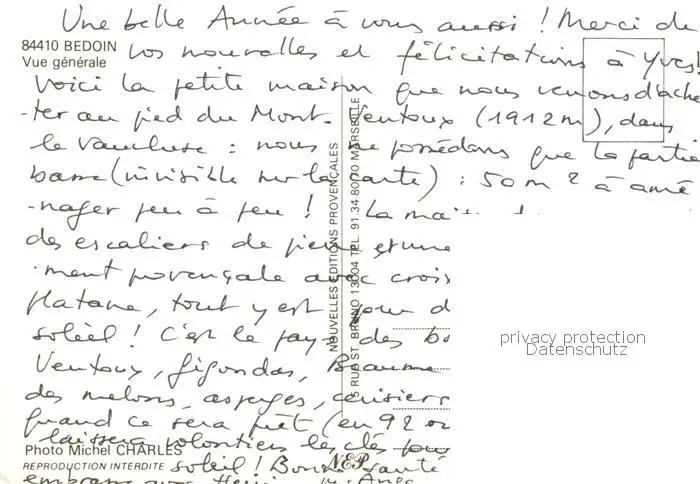 Une belle Année à vous aussi ! Merci de
84410 BEDOIN
Vue générale
vos nouvelles et félicitations à Yves!
Voici la petite maison que nous venons d'ache
-ter au pied du Mont-Ventoux (1912 m), dans
le Vaucluse : nous ne possédons que la partie
basse (invisible sur la carte) : 50 m2 à amé
-nager peu à peu ! La
des escaliers de pierre et une
-ment provençale avec crois
platane, tout y est pour d
soleil ! C'est le pays des bo
Ventoux, Gigondas, Beaume
des melons, asperges, cerisiers
Quand ce sera prêt (en 92 ou
laissera volontiers les clés pour
Photo Michel CHARLES
REPRODUCTION INTERDITE
soleil ! Bonne santé
NEP
NOUVELLES EDITIONS PROVENÇALES
RUE ST. BRUNO 13004 TEL. 91.34.80.70 MARSEILLE
privacy protection
Datenschutz